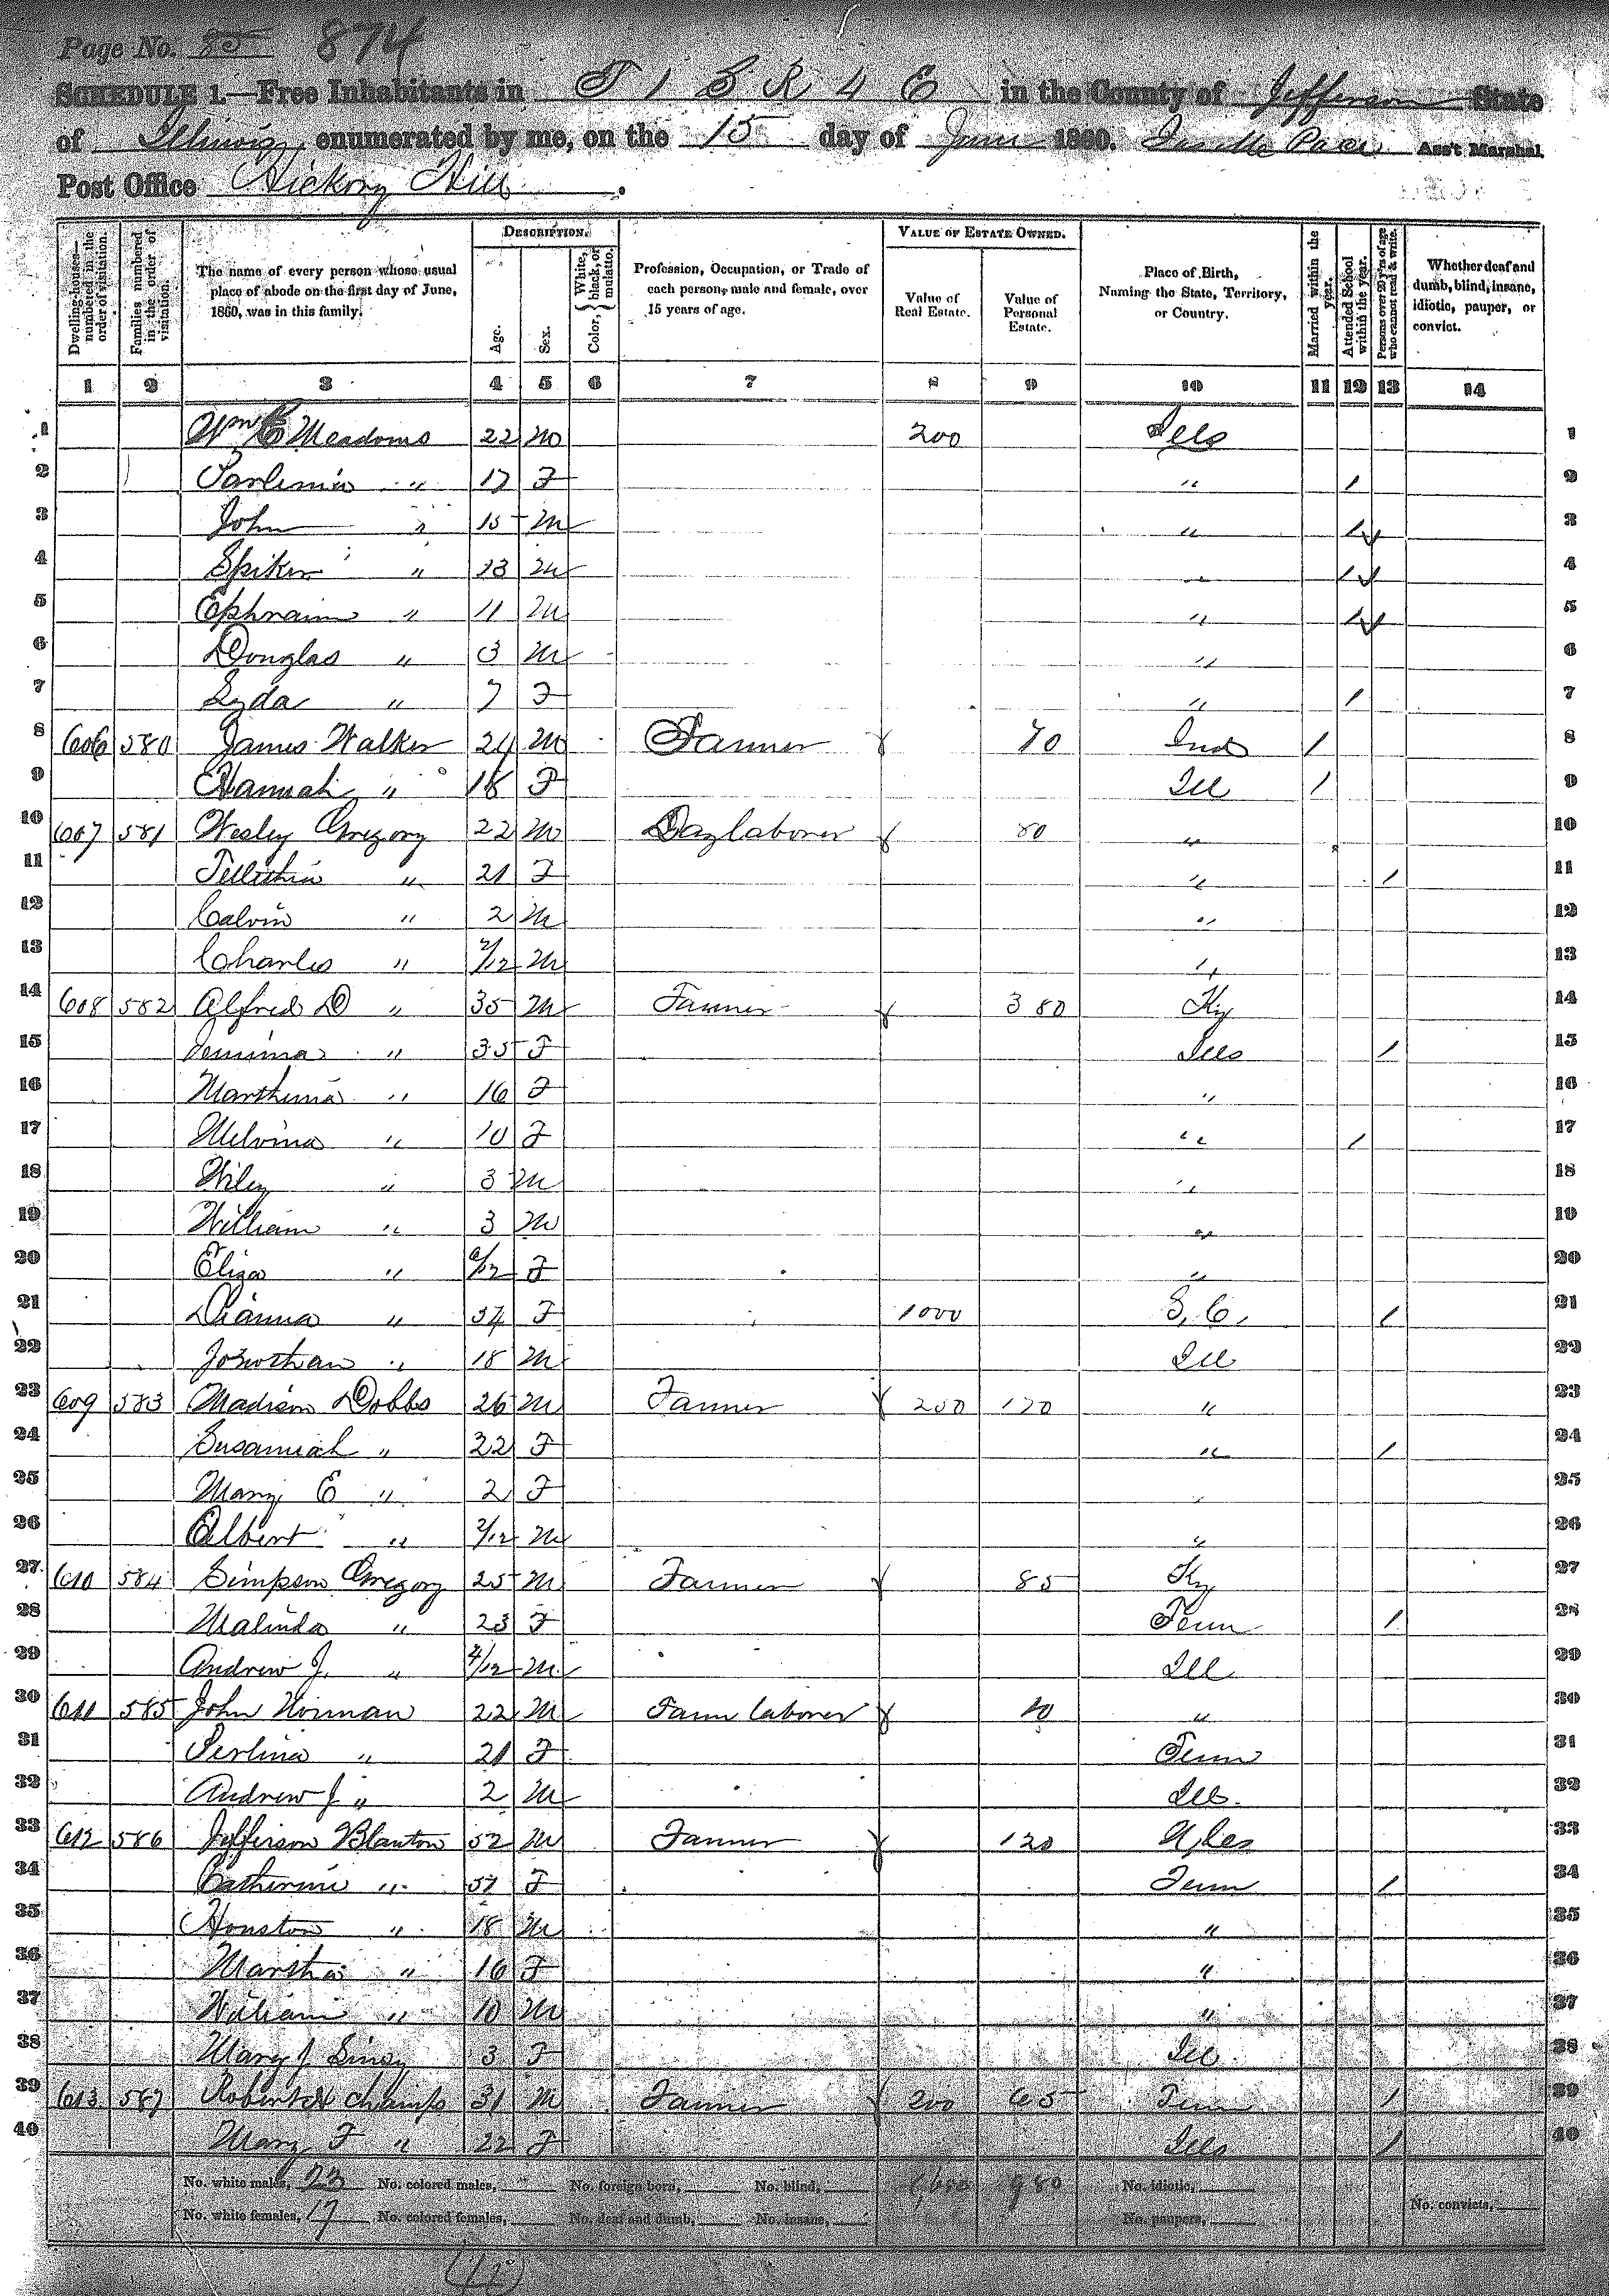 Page No. 85 874
SCHEDULE 1.—Free Inhabitants in T 1 S R 4 E in the County of Jefferson State
of Illinois enumerated by me, on the 15 day of June 1860. Ass't Marshal.
Post Office Hickory Hill.
Dwelling-houses—numbered in the order of visitation.
Families numbered in the order of visitation.
The name of every person whose usual place of abode on the first day of June, 1860, was in this family.
DESCRIPTION.
Age.
Sex.
Color, { White, black, or mulatto.
Profession, Occupation, or Trade of each person, male and female, over 15 years of age.
VALUE OF ESTATE OWNED.
Value of Real Estate.
Value of Personal Estate.
Place of Birth, Naming the State, Territory, or Country.
Married within the year.
Attended School within the year.
Persons over 20 y'rs of age who cannot read & write.
Whether deaf and dumb, blind, insane, idiotic, pauper, or convict.
1 2 3 4 5 6 7 8 9 10 11 12 13 14
1 Wm Meadows 22 M 200 Ills 1
2 Parlenia " 17 F " / 2
3 John " 15 M " / 3
4 " 13 M " / 4
5 Ephraim " 11 M " / 5
6 Douglas " 3 M " 6
7 Lyda " 7 F " / 7
8 606 580 James Walker 24 M Farmer 70 Ind / 8
9 Hannah " 18 F Ill / 9
10 607 581 Wesley Gregory 22 M Day laborer 80 " 10
11 " 21 F " / 11
12 Calvin " 2 M " 12
13 Charles " /12 M " 13
14 608 582 Alfred D " 35 M Farmer 380 Ky 14
15 Jemima " 35 F Ills / 15
16 " 16 F " 16
17 Melvina " 10 F " / 17
18 Wiley " 3 M " 18
19 William " 3 M " 19
20 Eliza " /12 F " 20
21 Dianna " 54 F 1000 S. C. / 21
22 Jonothan " 18 M Ill 22
23 609 583 Madison Dobbs 26 M Farmer 200 120 " 23
24 Susannah " 22 F " / 24
25 Mary E " 2 F " 25
26 Albert " 2/12 M " 26
27 610 584 Simpson Gregory 25 M Farmer 85 Ky 27
28 Malinda " 23 F Tenn / 28
29 Andrew J. " 4/12 M Ill 29
30 611 585 John Norman 22 M Farm laborer " 30
31 Perlina " 21 F Tenn 31
32 Andrew J " 2 M Ills. 32
33 612 586 Jefferson Blanton 52 M Farmer 120 33
34 Catherine " 51 F Tenn / 34
35 Houston " 18 M " 35
36 Martha " 16 F " 36
37 William " 10 M " 37
38 Mary J 3 F Ill 38
39 613 587 Robert 31 M Farmer 200 65 Tenn / 39
40 Mary F " 22 F Ills / 40
No. white males, 23 No. colored males, No. foreign born, No. blind, 980 No. idiotic,
No. white females, 17 No. colored females, No. deaf and dumb, No. insane, No. paupers, No. convicts,